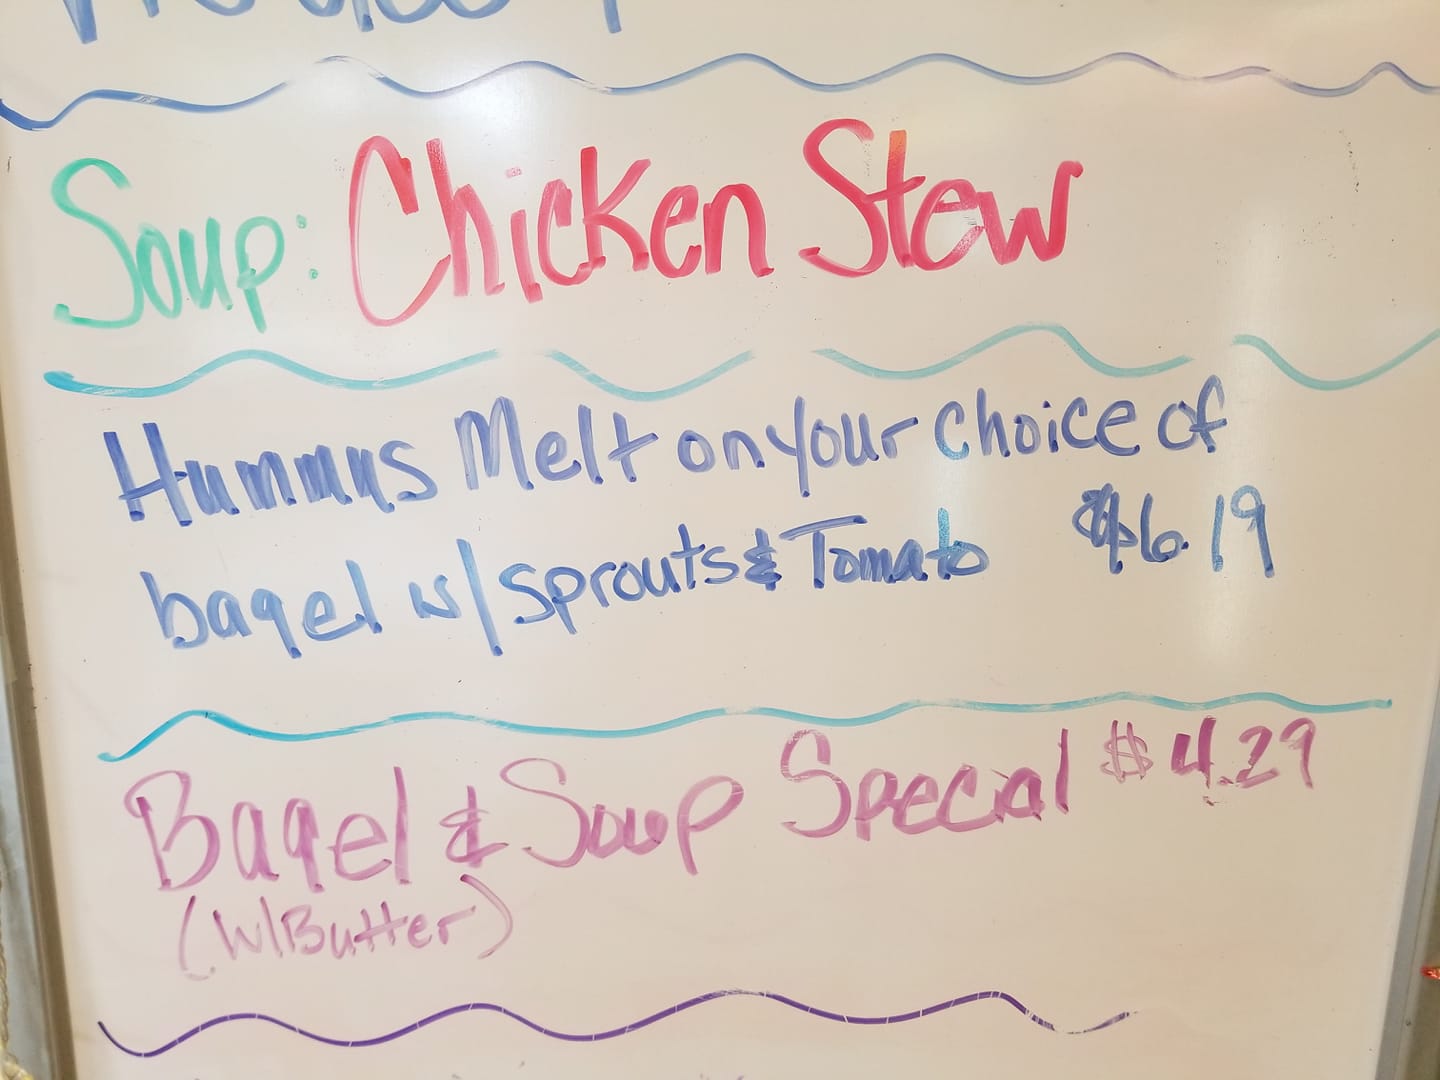 Soup: Chicken Stew
Hummus Melt on your choice of
bagel w/ sprouts & Tomato $6.19
Bagel & Soup Special $4.29
(w/Butter)